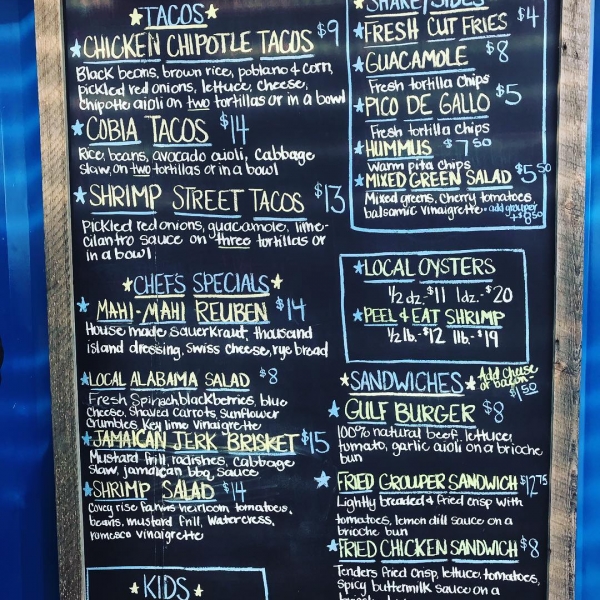 TACOS
CHICKEN CHIPOTLE TACOS $9
Black beans, brown rice, poblano & corn,
pickled red onions, lettuce, cheese,
Chipotle aioli on two tortillas or in a bowl
COBIA TACOS $14
Rice, beans, avocado aioli, Cabbage
Slaw, on two tortillas or in a bowl
SHRIMP STREET TACOS $13
Pickled red onions, guacamole, lime-
cilantro sauce on three tortillas or
in a bowl
CHEF'S SPECIALS
MAHI-MAHI REUBEN $14
House made sauerkraut, thousand
island dressing, Swiss cheese, rye bread
LOCAL ALABAMA SALAD $8
Fresh Spinach blackberries, blue
Cheese, Shaved Carrots, Sunflower
Crumbles Key lime Vinaigrette
JAMAICAN JERK BRISKET $15
Mustard frill, radishes, Cabbage
Slaw, jamaican bbq sauce
SHRIMP SALAD $14
Covey rise farms heirloom tomatoes,
beans, mustard Frill, Watercress,
romesco vinaigrette
KIDS
SHARE/SIDES
FRESH CUT FRIES $4
GUACAMOLE $8
Fresh tortilla Chips
PICO DE GALLO $5
Fresh tortilla chips
HUMMUS $7.50
Warm pita chips
MIXED GREEN SALAD $5.50
Mixed greens, cherry tomatoes
balsamic vinaigrette - add grouper
+$8.50
LOCAL OYSTERS
1/2 dz. $11 1dz. $20
PEEL & EAT SHRIMP
1/2 lb. $12 1lb. $19
SANDWICHES Add Cheese
or bacon - $1.50
GULF BURGER $8
100% natural beef, lettuce,
tomato, garlic aioli on a brioche
bun
FRIED GROUPER SANDWICH $12.75
Lightly breaded & fried crisp with
tomatoes, lemon dill sauce on a
brioche bun
FRIED CHICKEN SANDWICH $8
Tenders fried crisp, lettuce, tomatoes,
spicy buttermilk sauce on a